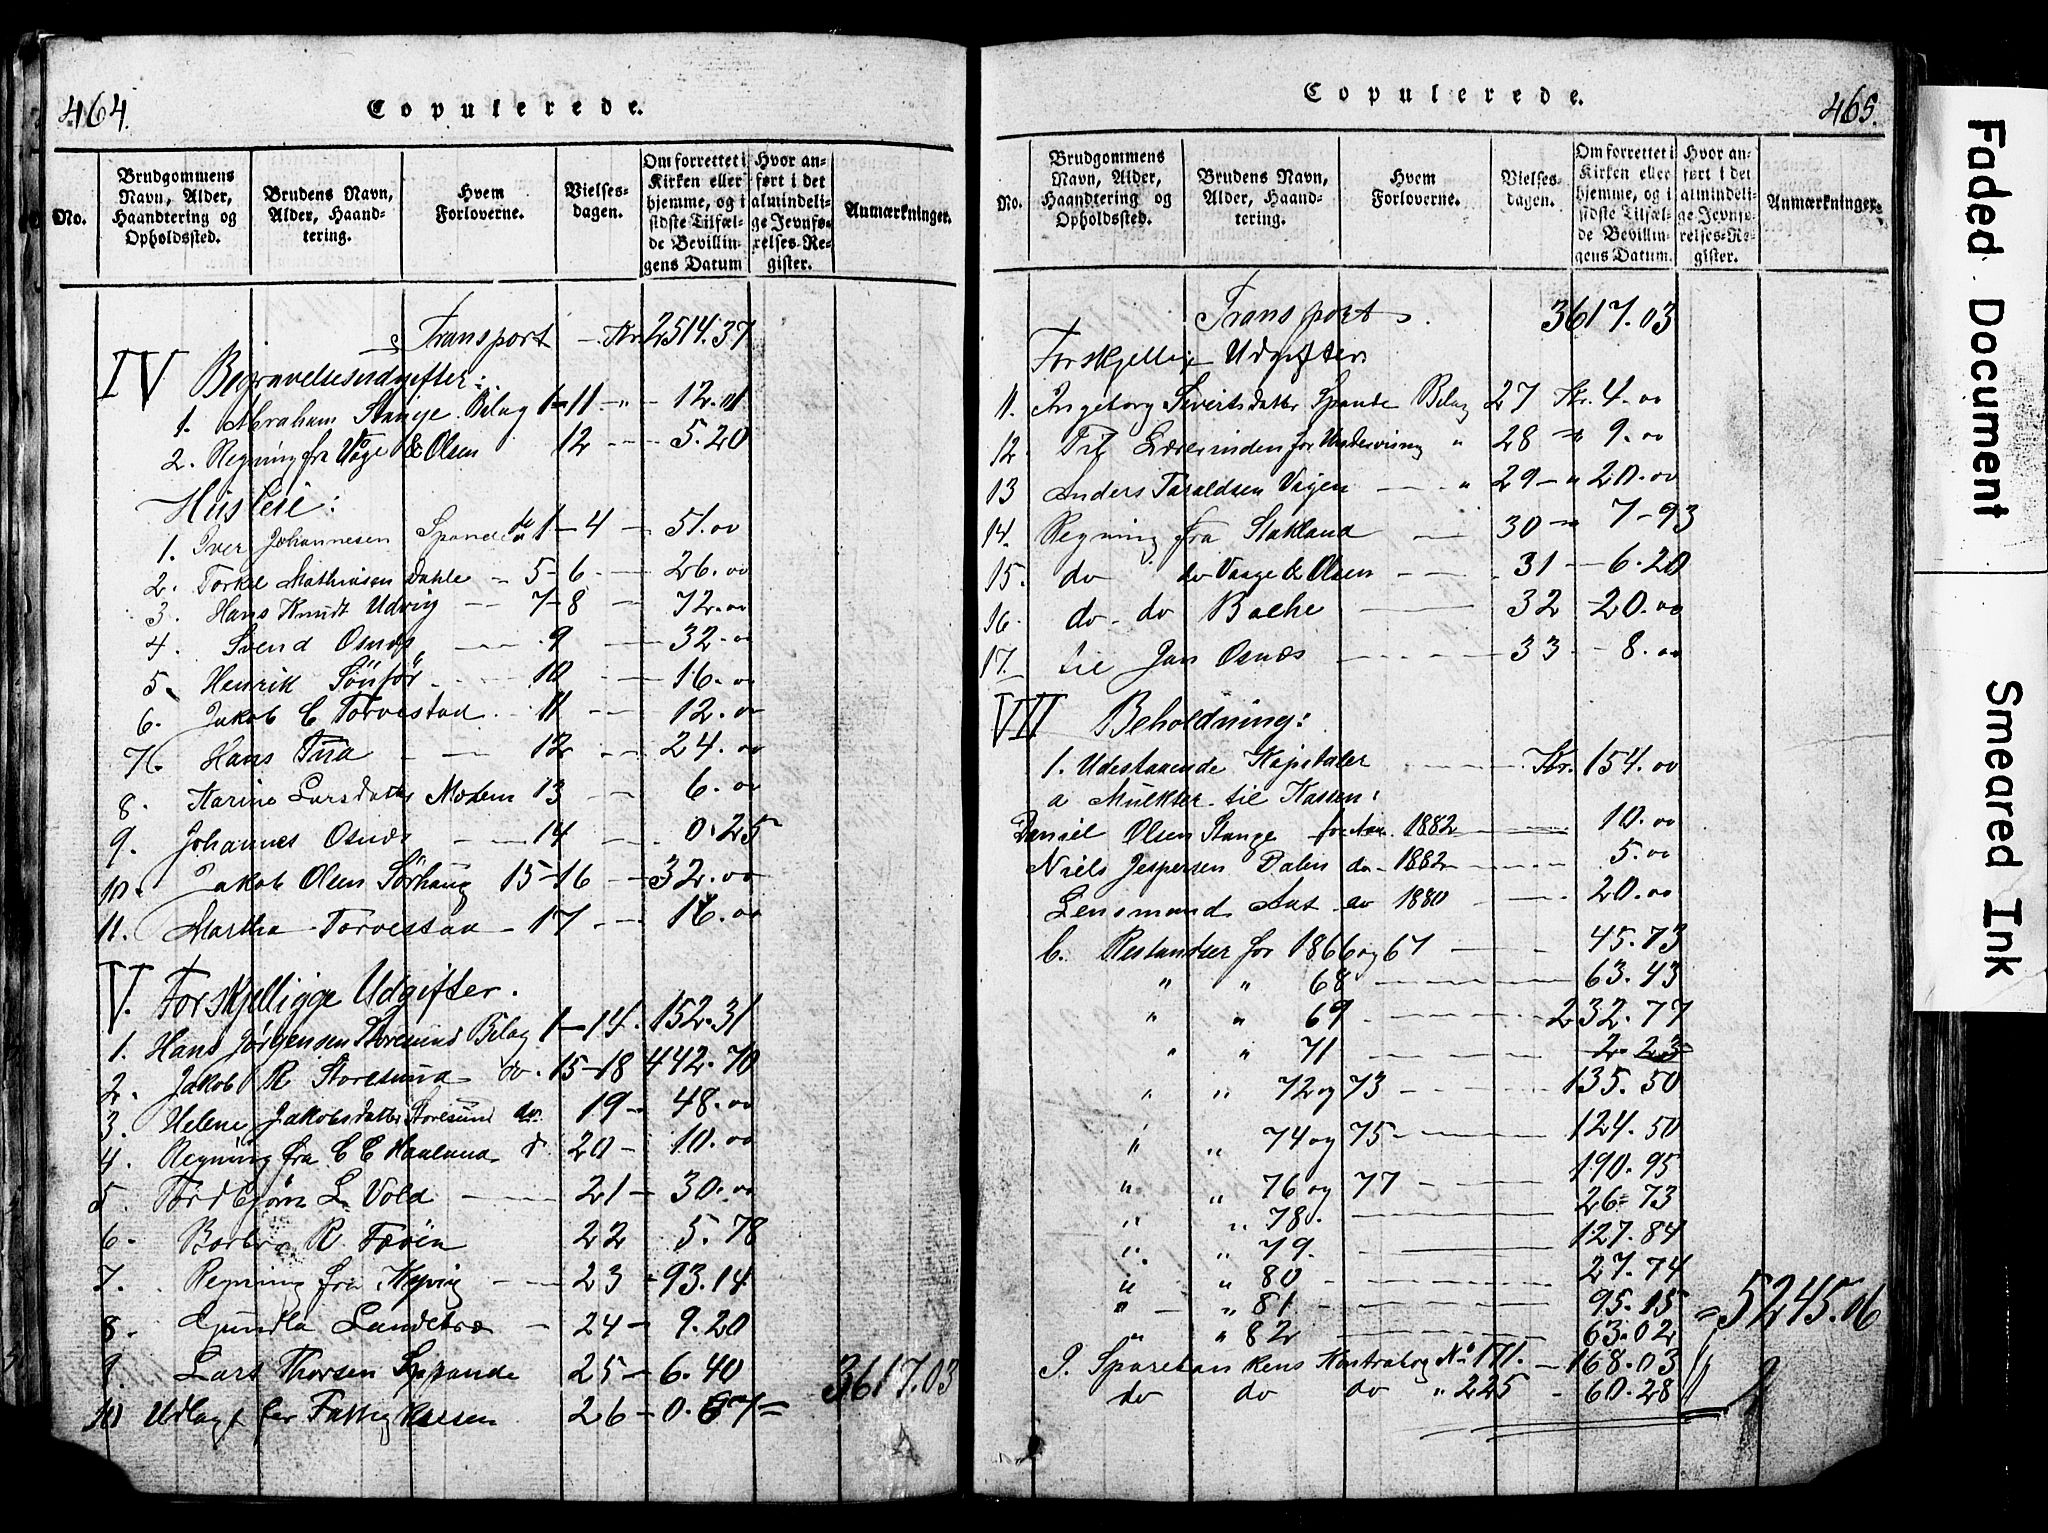 464.
Copulerede.
No.
Brudgommens Navn, Alder, Haandtering og Opholdssted.
Brudens Navn, Alder, Haandtering.
Hvem Forloverne.
Vielsesdagen.
Om forrettet i Kirken eller hjemme, og i sidste Tilfælde Bevillingens Datum
Hvor anført i det almindelige Jevnførelses-Register.
Anmærkninger.
Transport - Kr. 2514.37
IV Begravelsesudgifter:
1. Abraham Stange Bilag 1-11 - " - 12.01
2. Regning fra Våge & Olsen 12 - - - 5.20
Husleie:
1. Iver Johannesen Spande do 1-4 - 51.00
2. Torkel Mathiasen Dahle - 5-6 - - - 26.00
3. Hans Knudt Udvig - - 7-8 - - 72.00
4. Svend Osnæs - - - 9 - - - 32.00
5. Henrik Sönför - - 10 - - - 16.00
6. Jakob C Torvestad - - 11 - - 12.00
7. Hans Tud - - - 12 - - 24.00
8. Karine Larsdatter Moxem 13 - - 6.00
9. Johannes Osnæs - - - 14 - - 0.25
10. Jakob Olsen Sörhaug 15-16 - - 32.00
11. Martha Torvestad - 17 - - 16.00
V. Forskjellige Udgifter.
1. Hans Jørgensen Storesund Bilag 1-14. 152.31
2. Jakob R Storesund do. 15-18 442.70
3. Helene Jakobsdatter Storesund do. 19 - 48.00
4. Regning fra C C Haaland 20 - 10.00
5. Tordbjörn L Vold - - - 21 - 30.00
6. Borbra R Fæöen 22 5.78
7. Regning fra - - - 23 - 93.14
8. Gundla Landebræ - 24 - 9.20
9. Lars Thorsen Sppande 25 - 6.40
10 Udlagt for Fattigkassen 26 - 0.67 = 3617.03
465.
Copulerede.
No.
Brudgommens Navn, Alder, Haandtering og Opholdssted.
Brudens Navn, Alder, Haandtering.
Hvem Forloverne.
Vielsesdagen.
Om forrettet i Kirken eller hjemme, og i sidste Tilfælde Bevillingens Datum.
Hvor anført i det almindelige Jevnførelses-Register.
Anmærkninger.
Transport 3617.03
Forskjellig Udgifter
11. Ingeborg Sivertsdatter Spande Bilag 27 Kr. 4.00
12. Til Lærerinden for Undervisning " 28 - " 9.00
13 Anders Taraldsen Vågen - - - " 29 - " 20.00
14. Regning fra Stakland - - 30 - " 7-93
15. do do Vaage & Olsen - - - 31 - 6.20
16. do. do Bache - - - 32 - 20.00
17. til Jan Osnæs - - - - - 33 - - 8.00
VII Beholdning:
1. Udestaaende Kapitaler - - - - Kr. 154.00
a Mulkter til Kassen:
Daniel Olsen Stange for Aar. 1882 - - - 10.00
Niels Jespersen Dalen do - 1882 - - - 5.00
Lensmand Aas do 1880 - - - 20.00
b. Restandser for 1866 og 67 - - - 45.73
" " 68 - - - - 63.43
" " 69 - - - - 232.77
" " 71 - - - - 2.23
" " 72 og 73 - - - - 135.50
" " 74 og 75 - - - - 124.50
" " 76 og 77 - - - - 190.95
" " 78. - - - - 26=73
" " 79. - - - - 127.84
" " 80 - - - - 27.74
" - " 81 - - - - 95.15 = 5245.06
" " 82 - - - - 63.02
2. Sparebankens Kontrabog No 171. - 168.03
do do do " 225 - 60.28
Faded Document
Smeared Ink